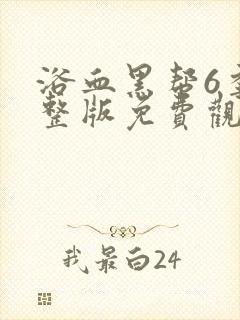 浴血黑帮6季
整版免費觀
我最白24